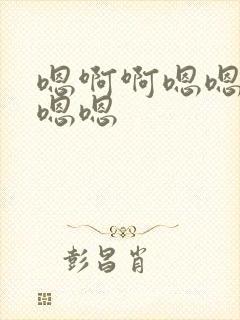 嗯啊啊嗯嗯
嗯嗯
彭昌肖